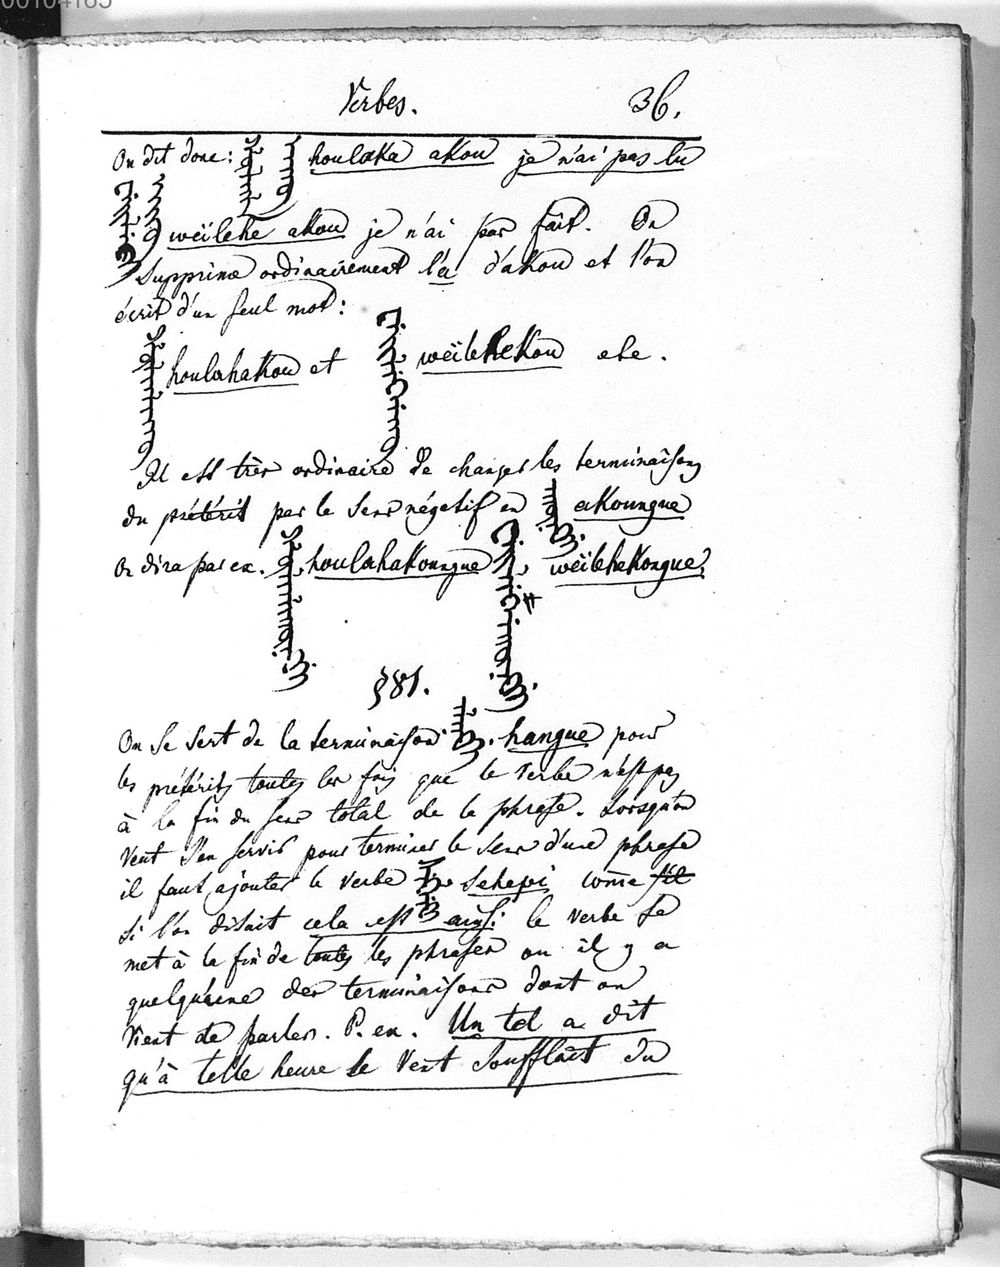 00104165
Verbes. 36.
On dit donc: ᡥᡡᠯᠠᡥᠠ ᠠᡴᡡ houlaha akou je n'ai pas lu
ᠸᡝᡳᠯᡝᡥᡝ ᠠᡴᡡ weïlehe akou je n'ai pas fait. On
supprime ordinairement l'a d'akou et l'on
écrit d'un seul mot:
ᡥᡡᠯᠠᡥᠠᡴᡡ houlahakou et ᠸᡝᡳᠯᡝᡥᡝᡴᡡ weïlehekou etc.
Il est très ordinaire de changer les terminaisons
du prétérit par le sens négatif en akoungue
On dira par ex. houlahakoungue weïlehekongue
§ 81.
On se sert de la terminaison hangue pour
les prétérits toutes les fois que le verbe n'est pas
à la fin du sens total de la phrase. Lorsqu'on
veut s'en servir pour terminer le sens d'une phrase
il faut ajouter le verbe sehepi come s'il
si l'on disait cela est ainsi le verbe se
met à la fin de toutes les phrases ou il y a
quelqu'une des terminaisons dont on
vient de parler. P. ex. Un tel a dit
qu'à telle heure le vent soufflait du